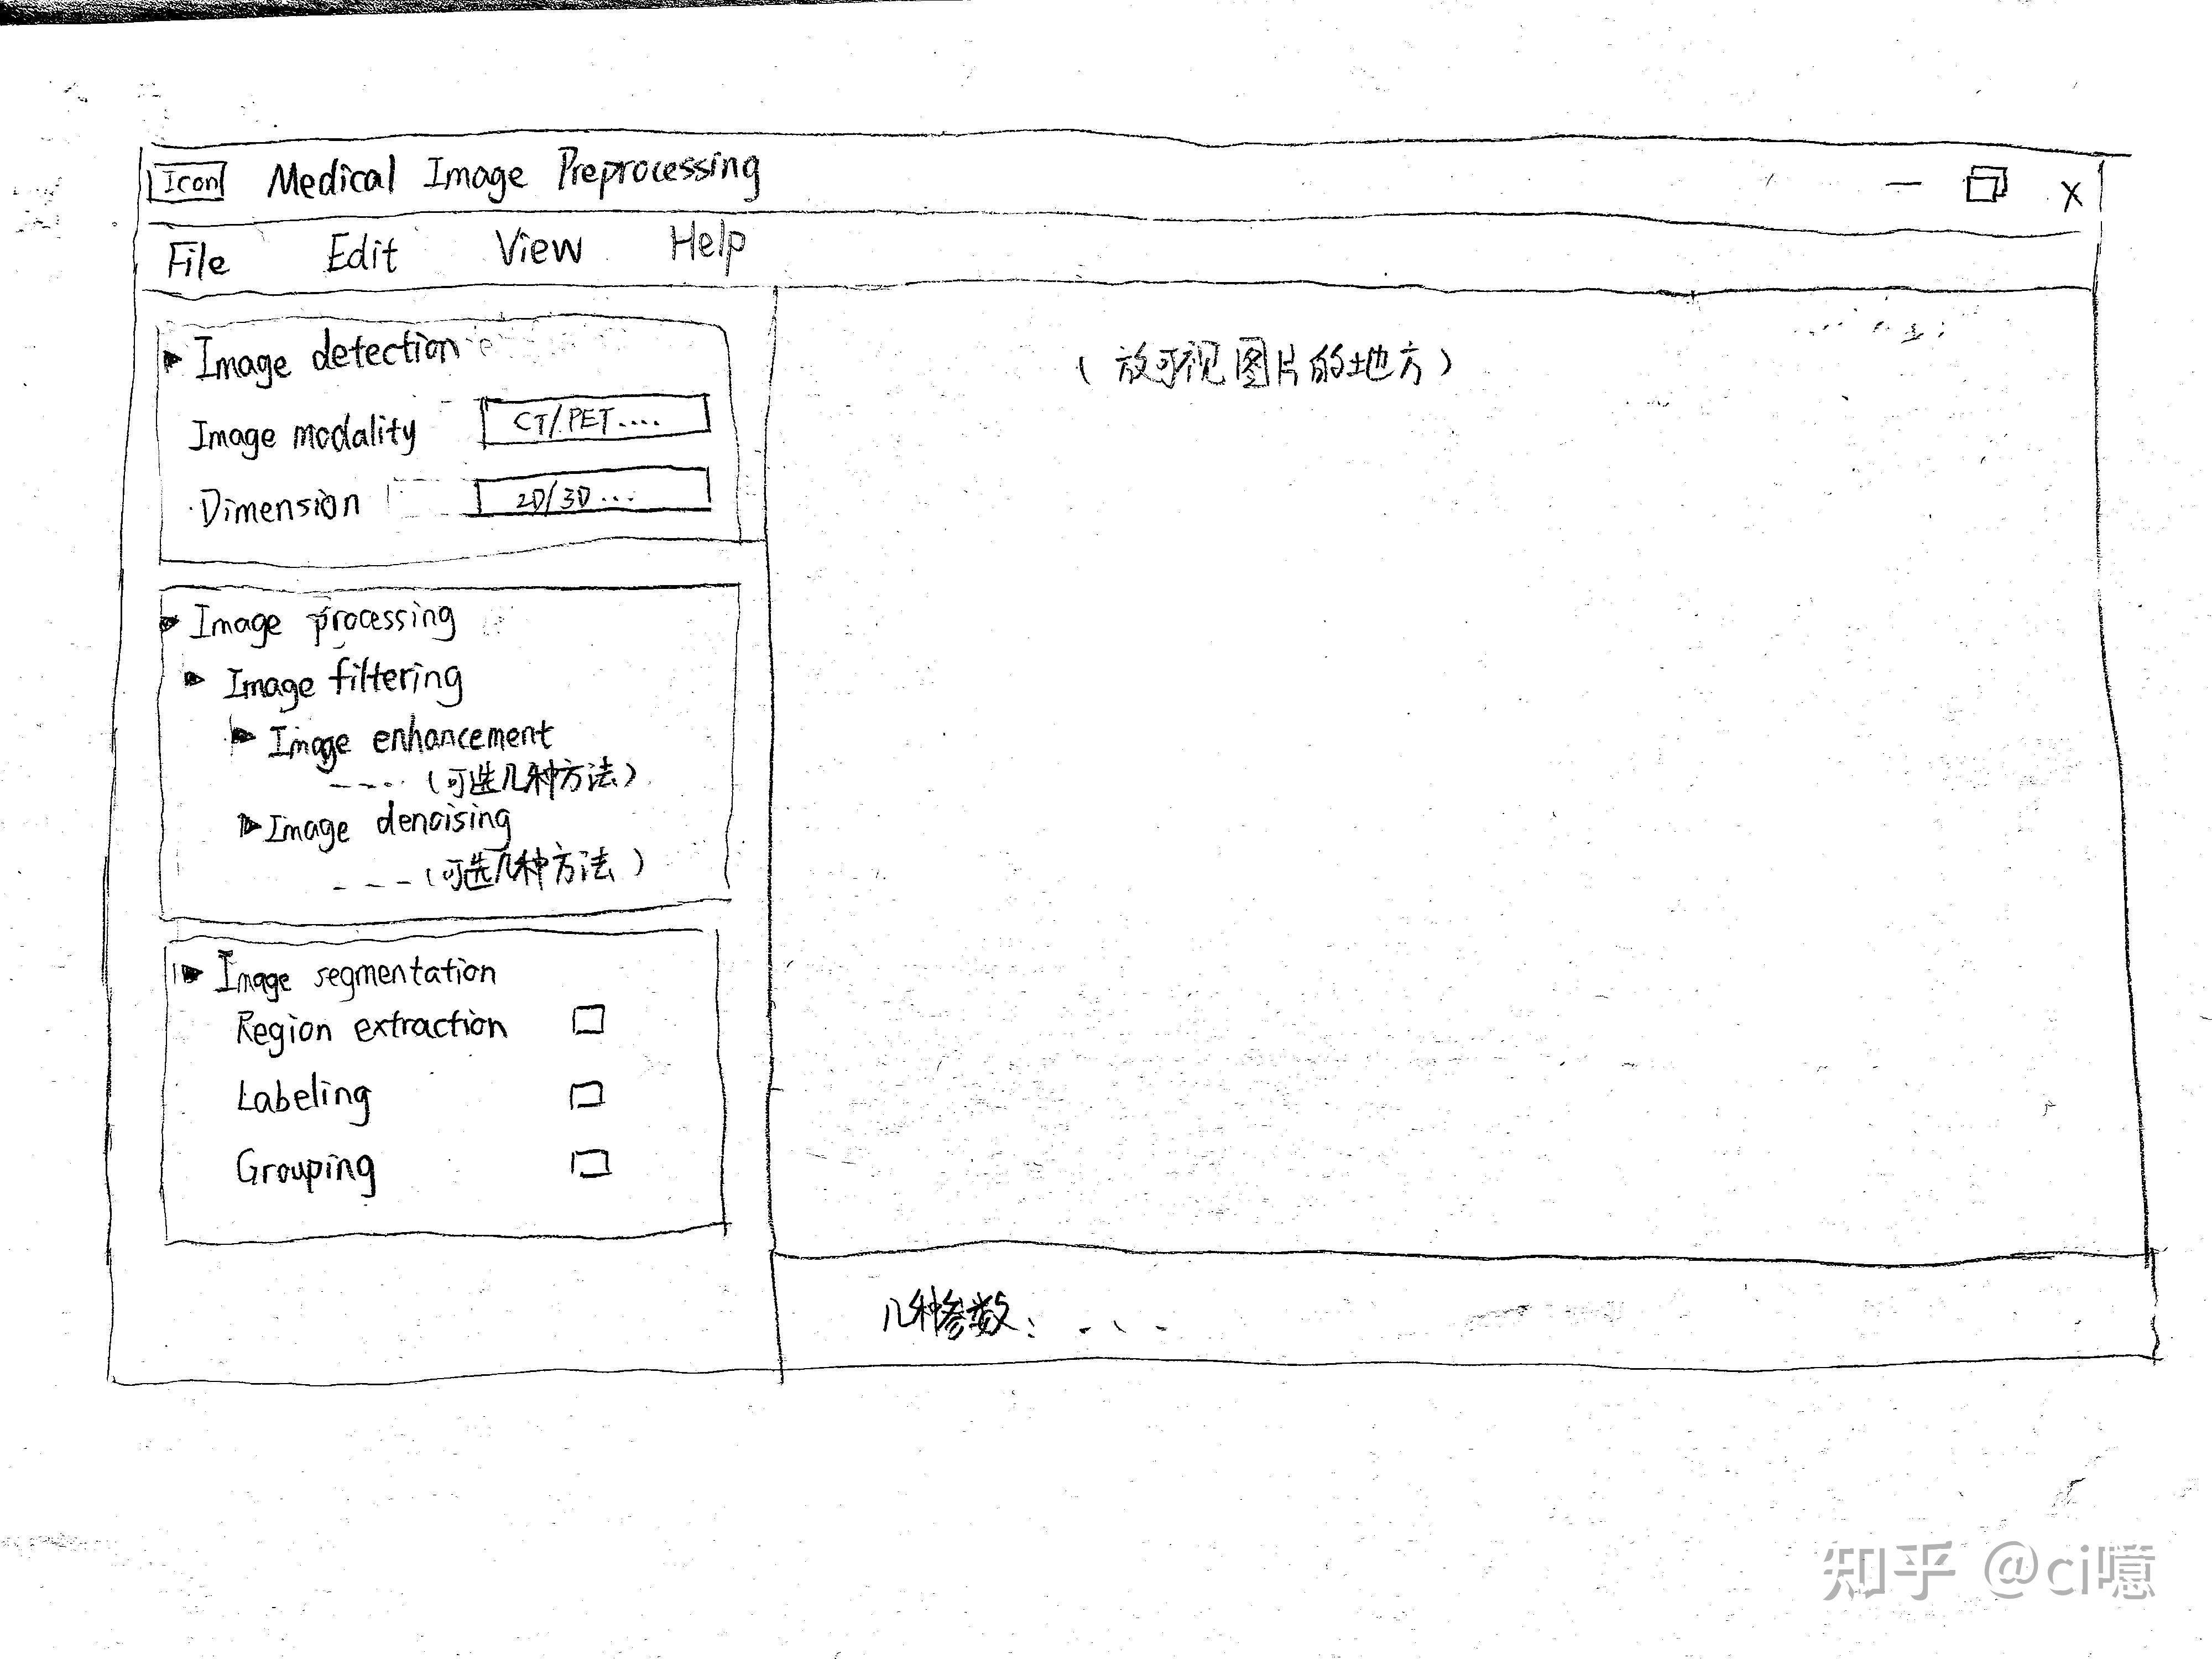 Icon Medical Image Preprocessing — X
File Edit View Help
Image detection
Image modality CT/PET....
Dimension 2D/3D...
Image processing
Image filtering
Image enhancement
----(可选几种方法)
Image denoising
----(可选几种方法)
Image segmentation
Region extraction
Labeling
Grouping
(放可视图片的地方)
几种参数: ...
知乎 @ci噫